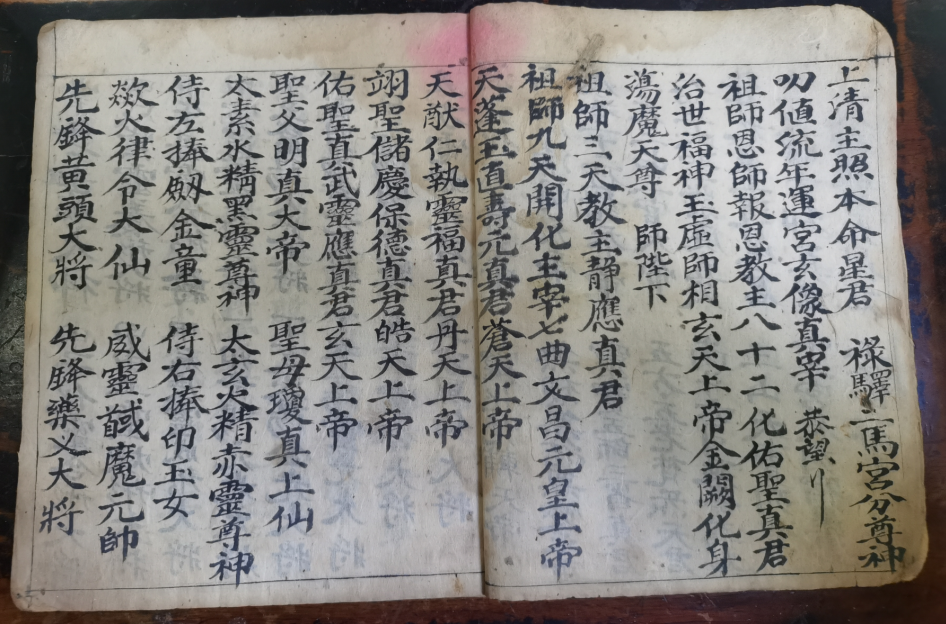 上清主照本命星君 祿驛二馬宮分尊神
叨值流年運宮玄像真宰 恭望
祖師恩師報恩教主八十二化佑聖真君
治世福神玉虛師相玄天上帝金闕化身
蕩魔天尊 師陛下
祖師三天教主靜應真君
祖師九天開化主宰七曲文昌元皇上帝
天蓬玉真壽元真君蒼天上帝
天猷仁執靈福真君丹天上帝
翊聖儲慶保德真君皓天上帝
佑聖真武靈應真君玄天上帝
聖父明真大帝 聖母瓊真上仙
太素水精黑靈尊神 太玄火精赤靈尊神
侍左捧劔金童 侍右捧印玉女
歘火律令大仙 威靈馘魔元帥
先鋒黃頭大將 先鋒藥乂大將